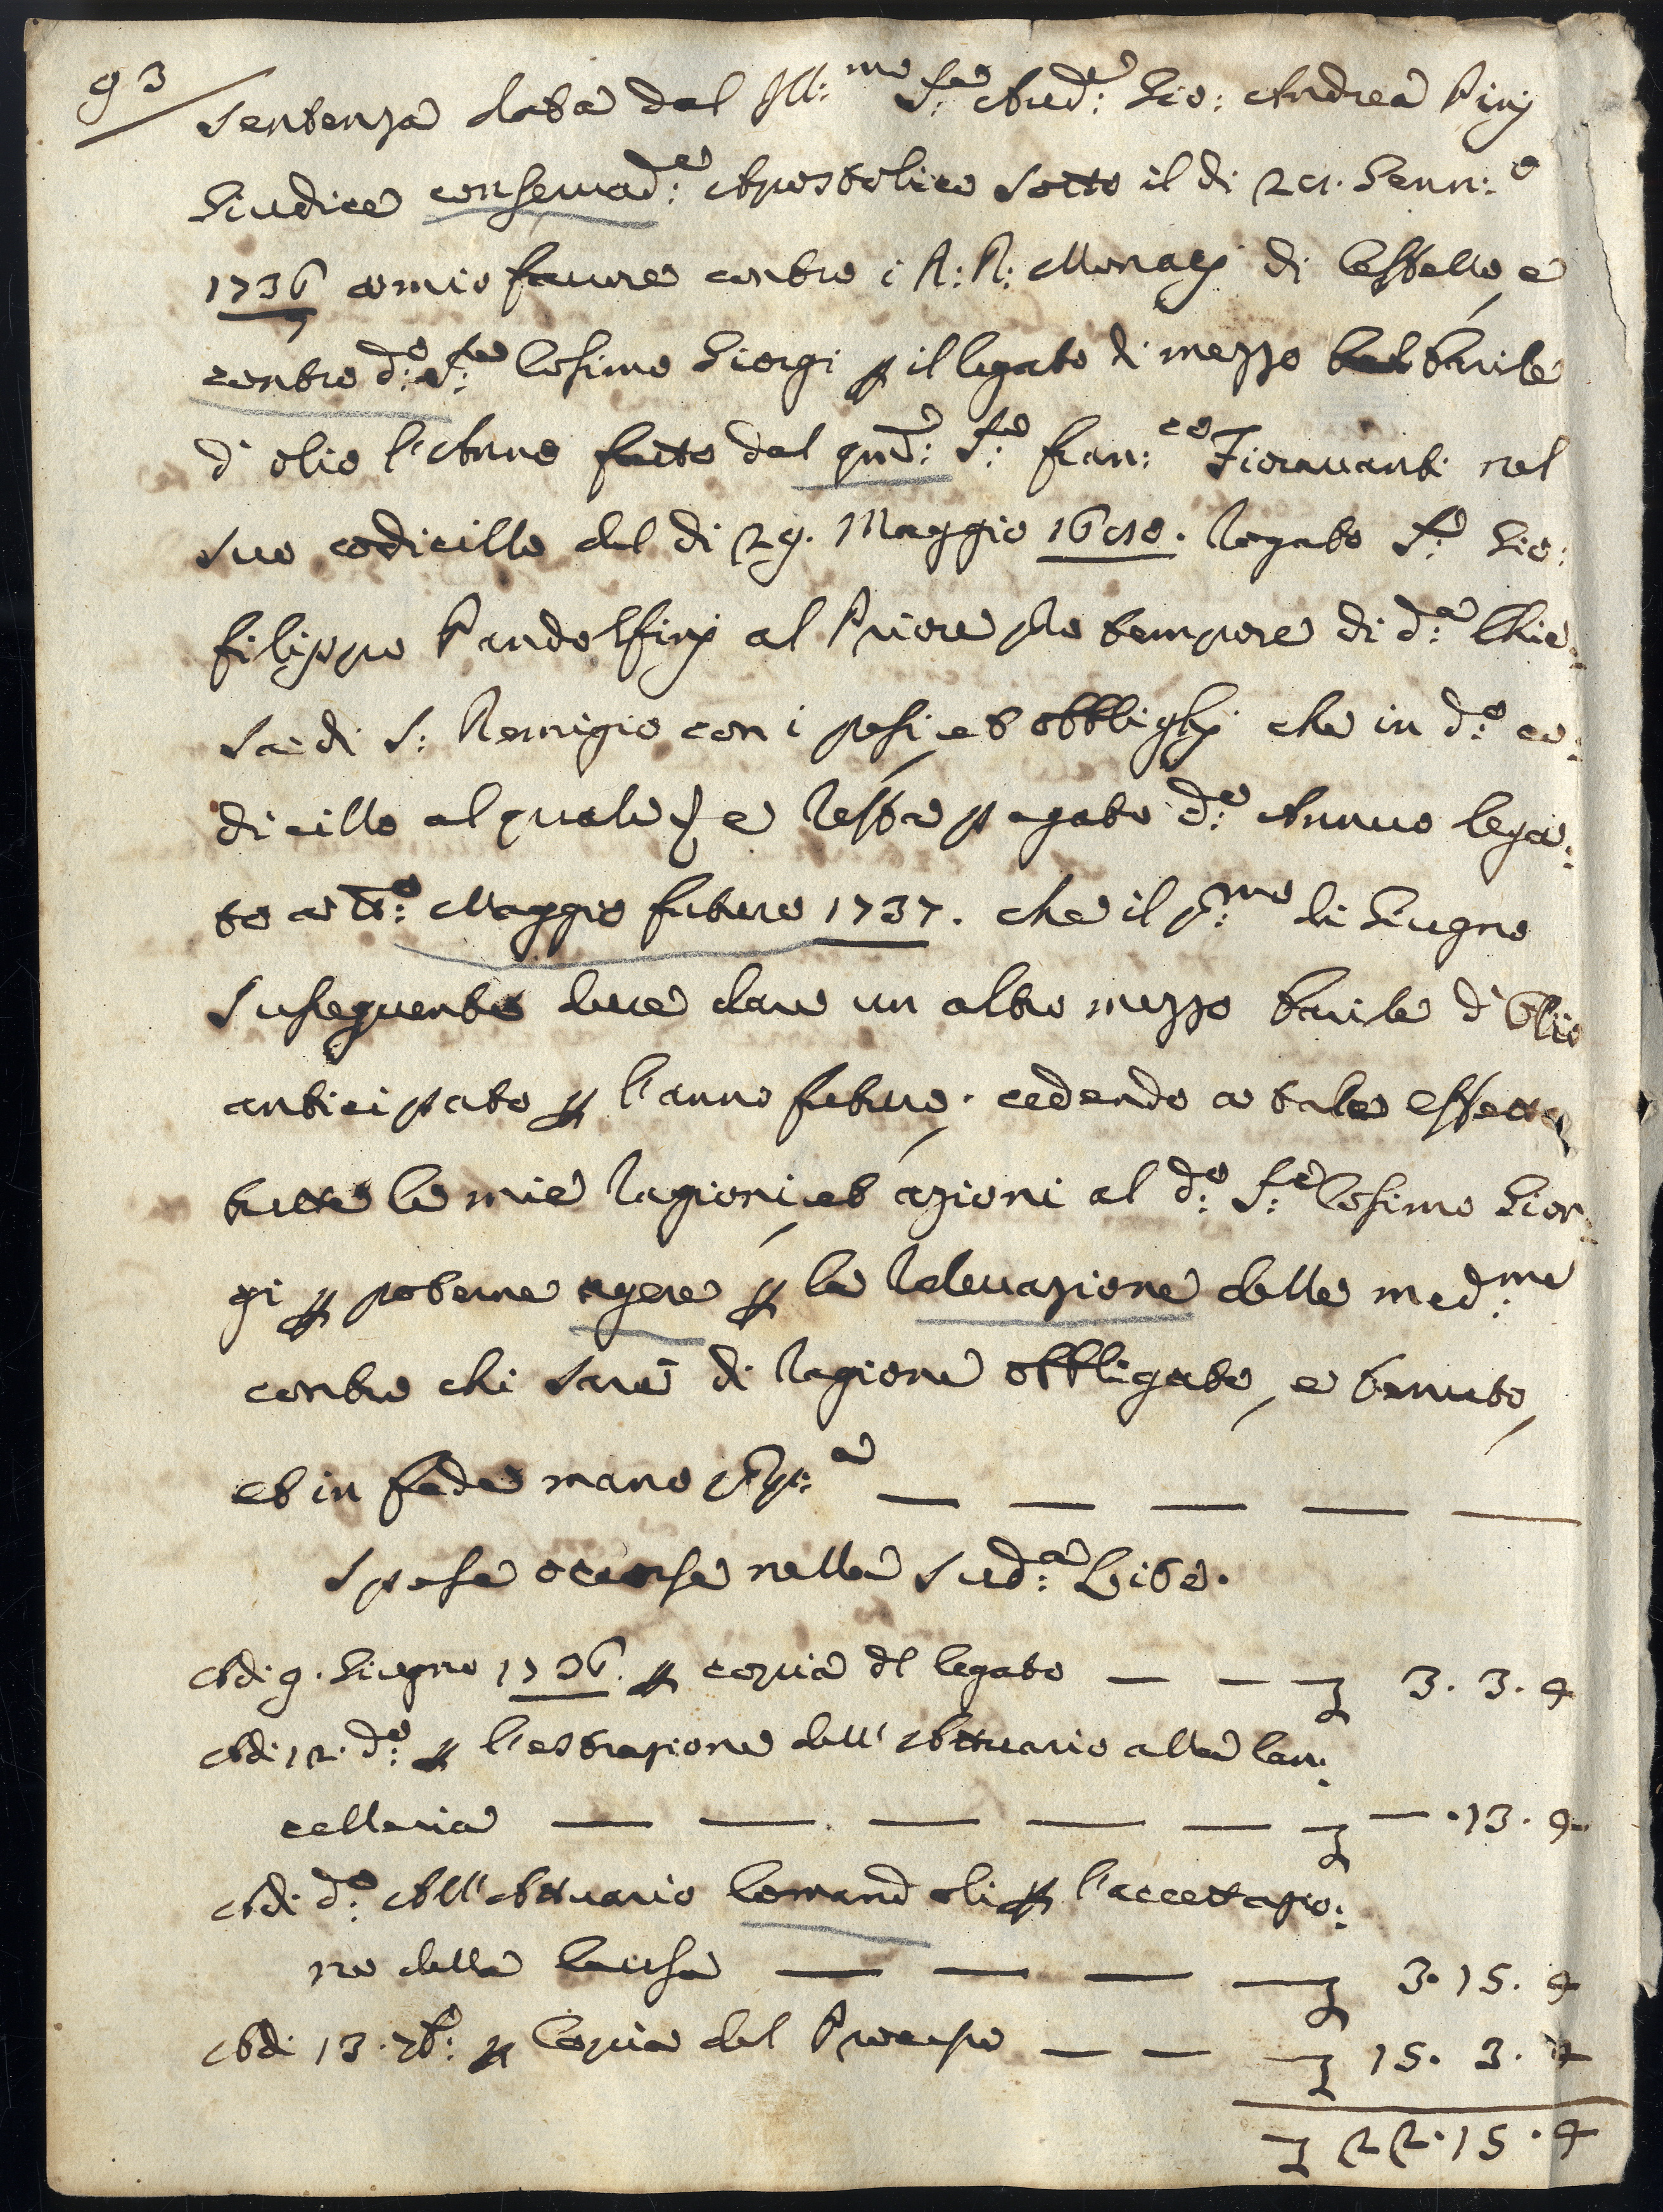 93
Sentenza data dal Ill:mo Sre Aud:re Gio: Andrea Pinj
Giudice conservad:e Apostolico sotto il di 21. Genn:o
1736 a mio favore contro i R: R: Monaci di Cestello, e
contro d:o S:re Cosimo Giorgi p il legato di mezzo barile
d'olio l'Anno fatto dal qm: S:re Fran:co Fioravanti nel
suo codicillo del di 29. Maggio rogato S:r Gio:
Filippo Pandolfinj al Priore pro tempore di d:a Chie:
sa di S: Remigio con i pesi, et obblighj che in d:o co:
dicillo al quale e resta pagato d:o Annuo lega:
to a t:o Maggio futuro 1737. che il p:mo di Giugno
susseguente deve dare un altro mezzo barile d'Olio
anticipato p l'anno futuro, cedendo a tale effetto
tutte le mie ragioni, et azioni al d:o S:re Cosimo Gior:
gi p poterne agere p la relevazione delle med:me
contro chi sarà di ragione obbligato, e tenuto,
et in fede mano pp:a — — — — —
Spese occorse nella Sud:a Lite.
Adi 9. Giugno 1736. p copia del legato — — £ 3. 3. 4
Adi 12. d:o p l'estrazione dell'Attuario alla Can:
celleria — — — — — £ — .13. 4
Adi d:o All'Attuario Comandoli p l'accettazio:
ne della Causa — — — — £ 3. 15. 4
Adi 13. 7b:e p Copia del Processo — — £ 15. 3. 4
£ 22. 15. 4